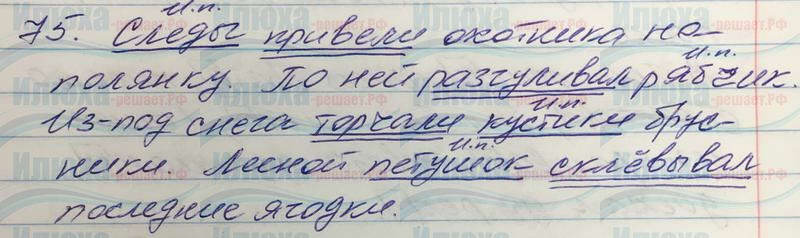 И.п.
75. Следы привели охотника на
И.п.
полянку. По ней разгуливал рябчик.
И.п.
Из-под снега торчали кустики брус-
И.п.
ники. Лесной петушок склёвывал
последние ягодки.